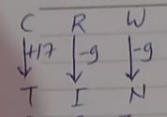 C R W
+17 -9 -9
T I N